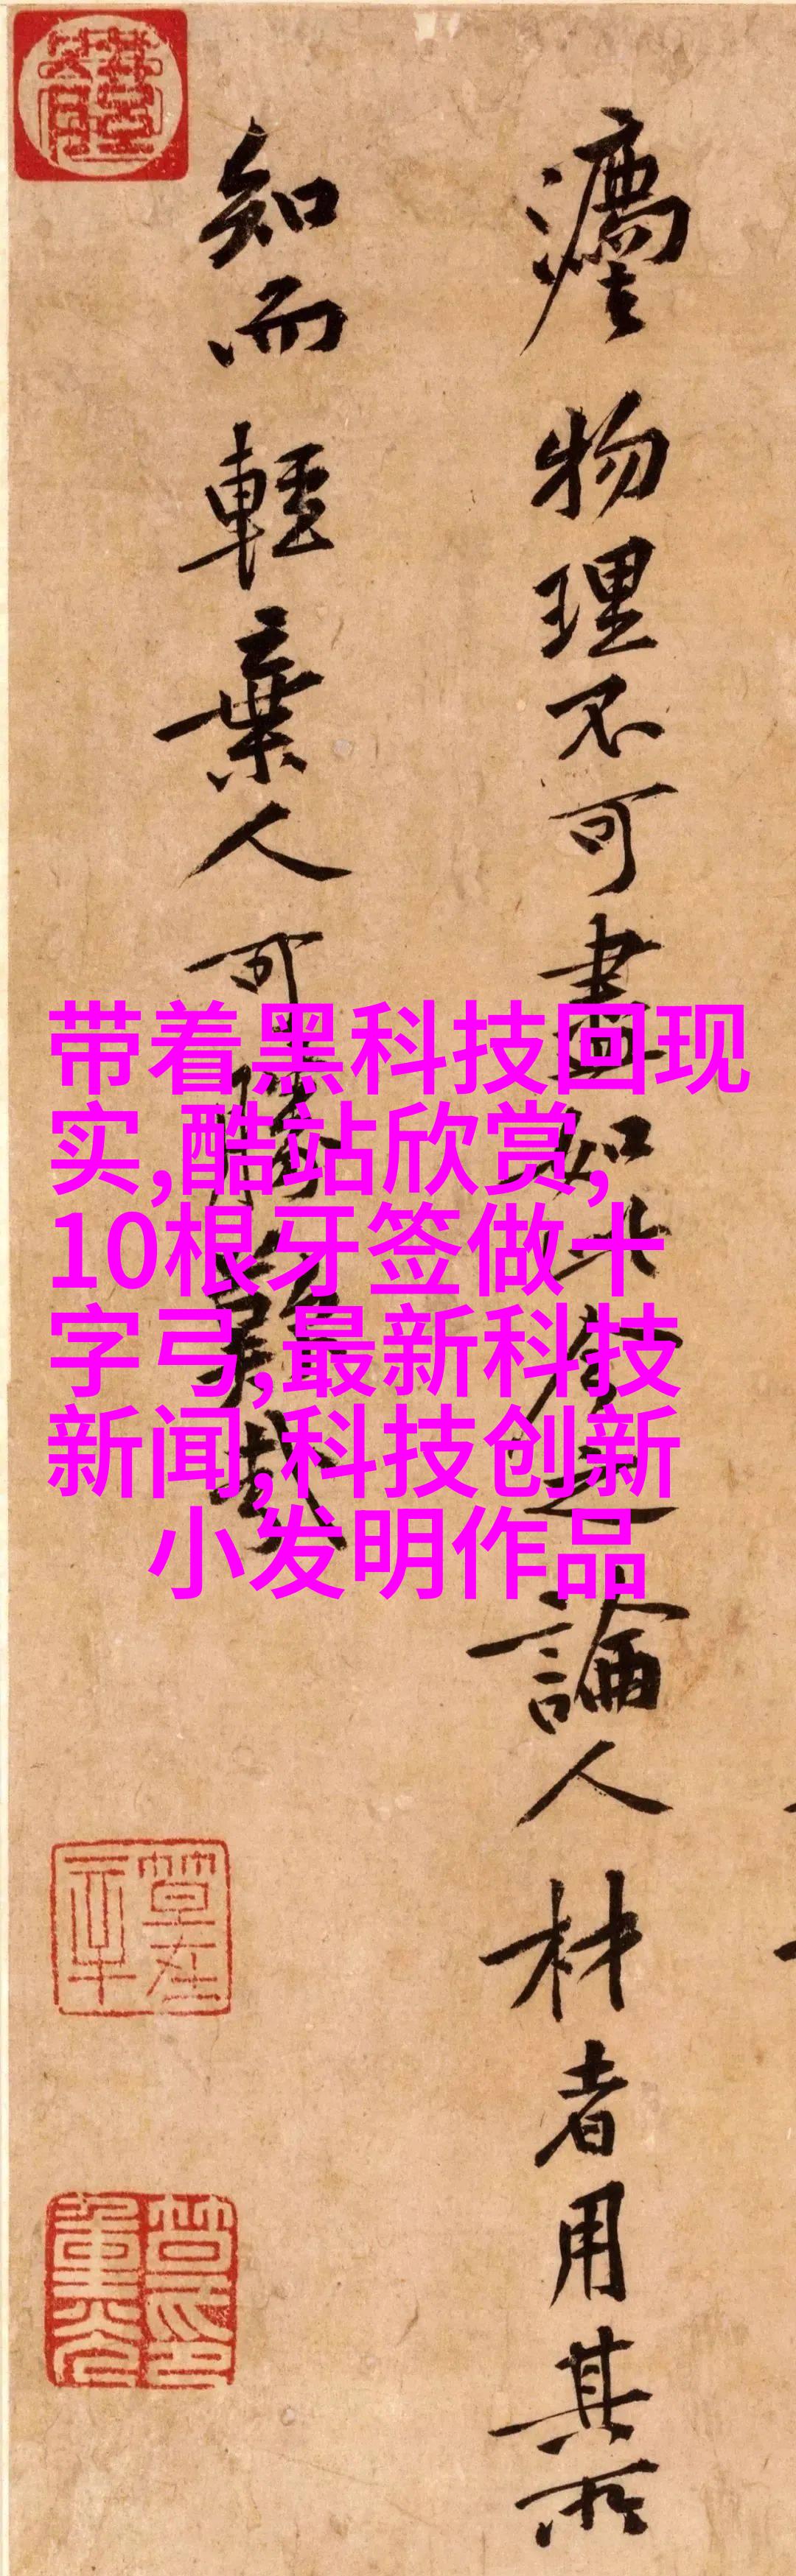 瘧物理不可盡如此余之論人材者用其所
知而輕棄人可勝歎哉
带着黑科技回现
实,酷站欣赏,
10根牙签做十
字弓,最新科技
新闻,科技创新
小发明作品